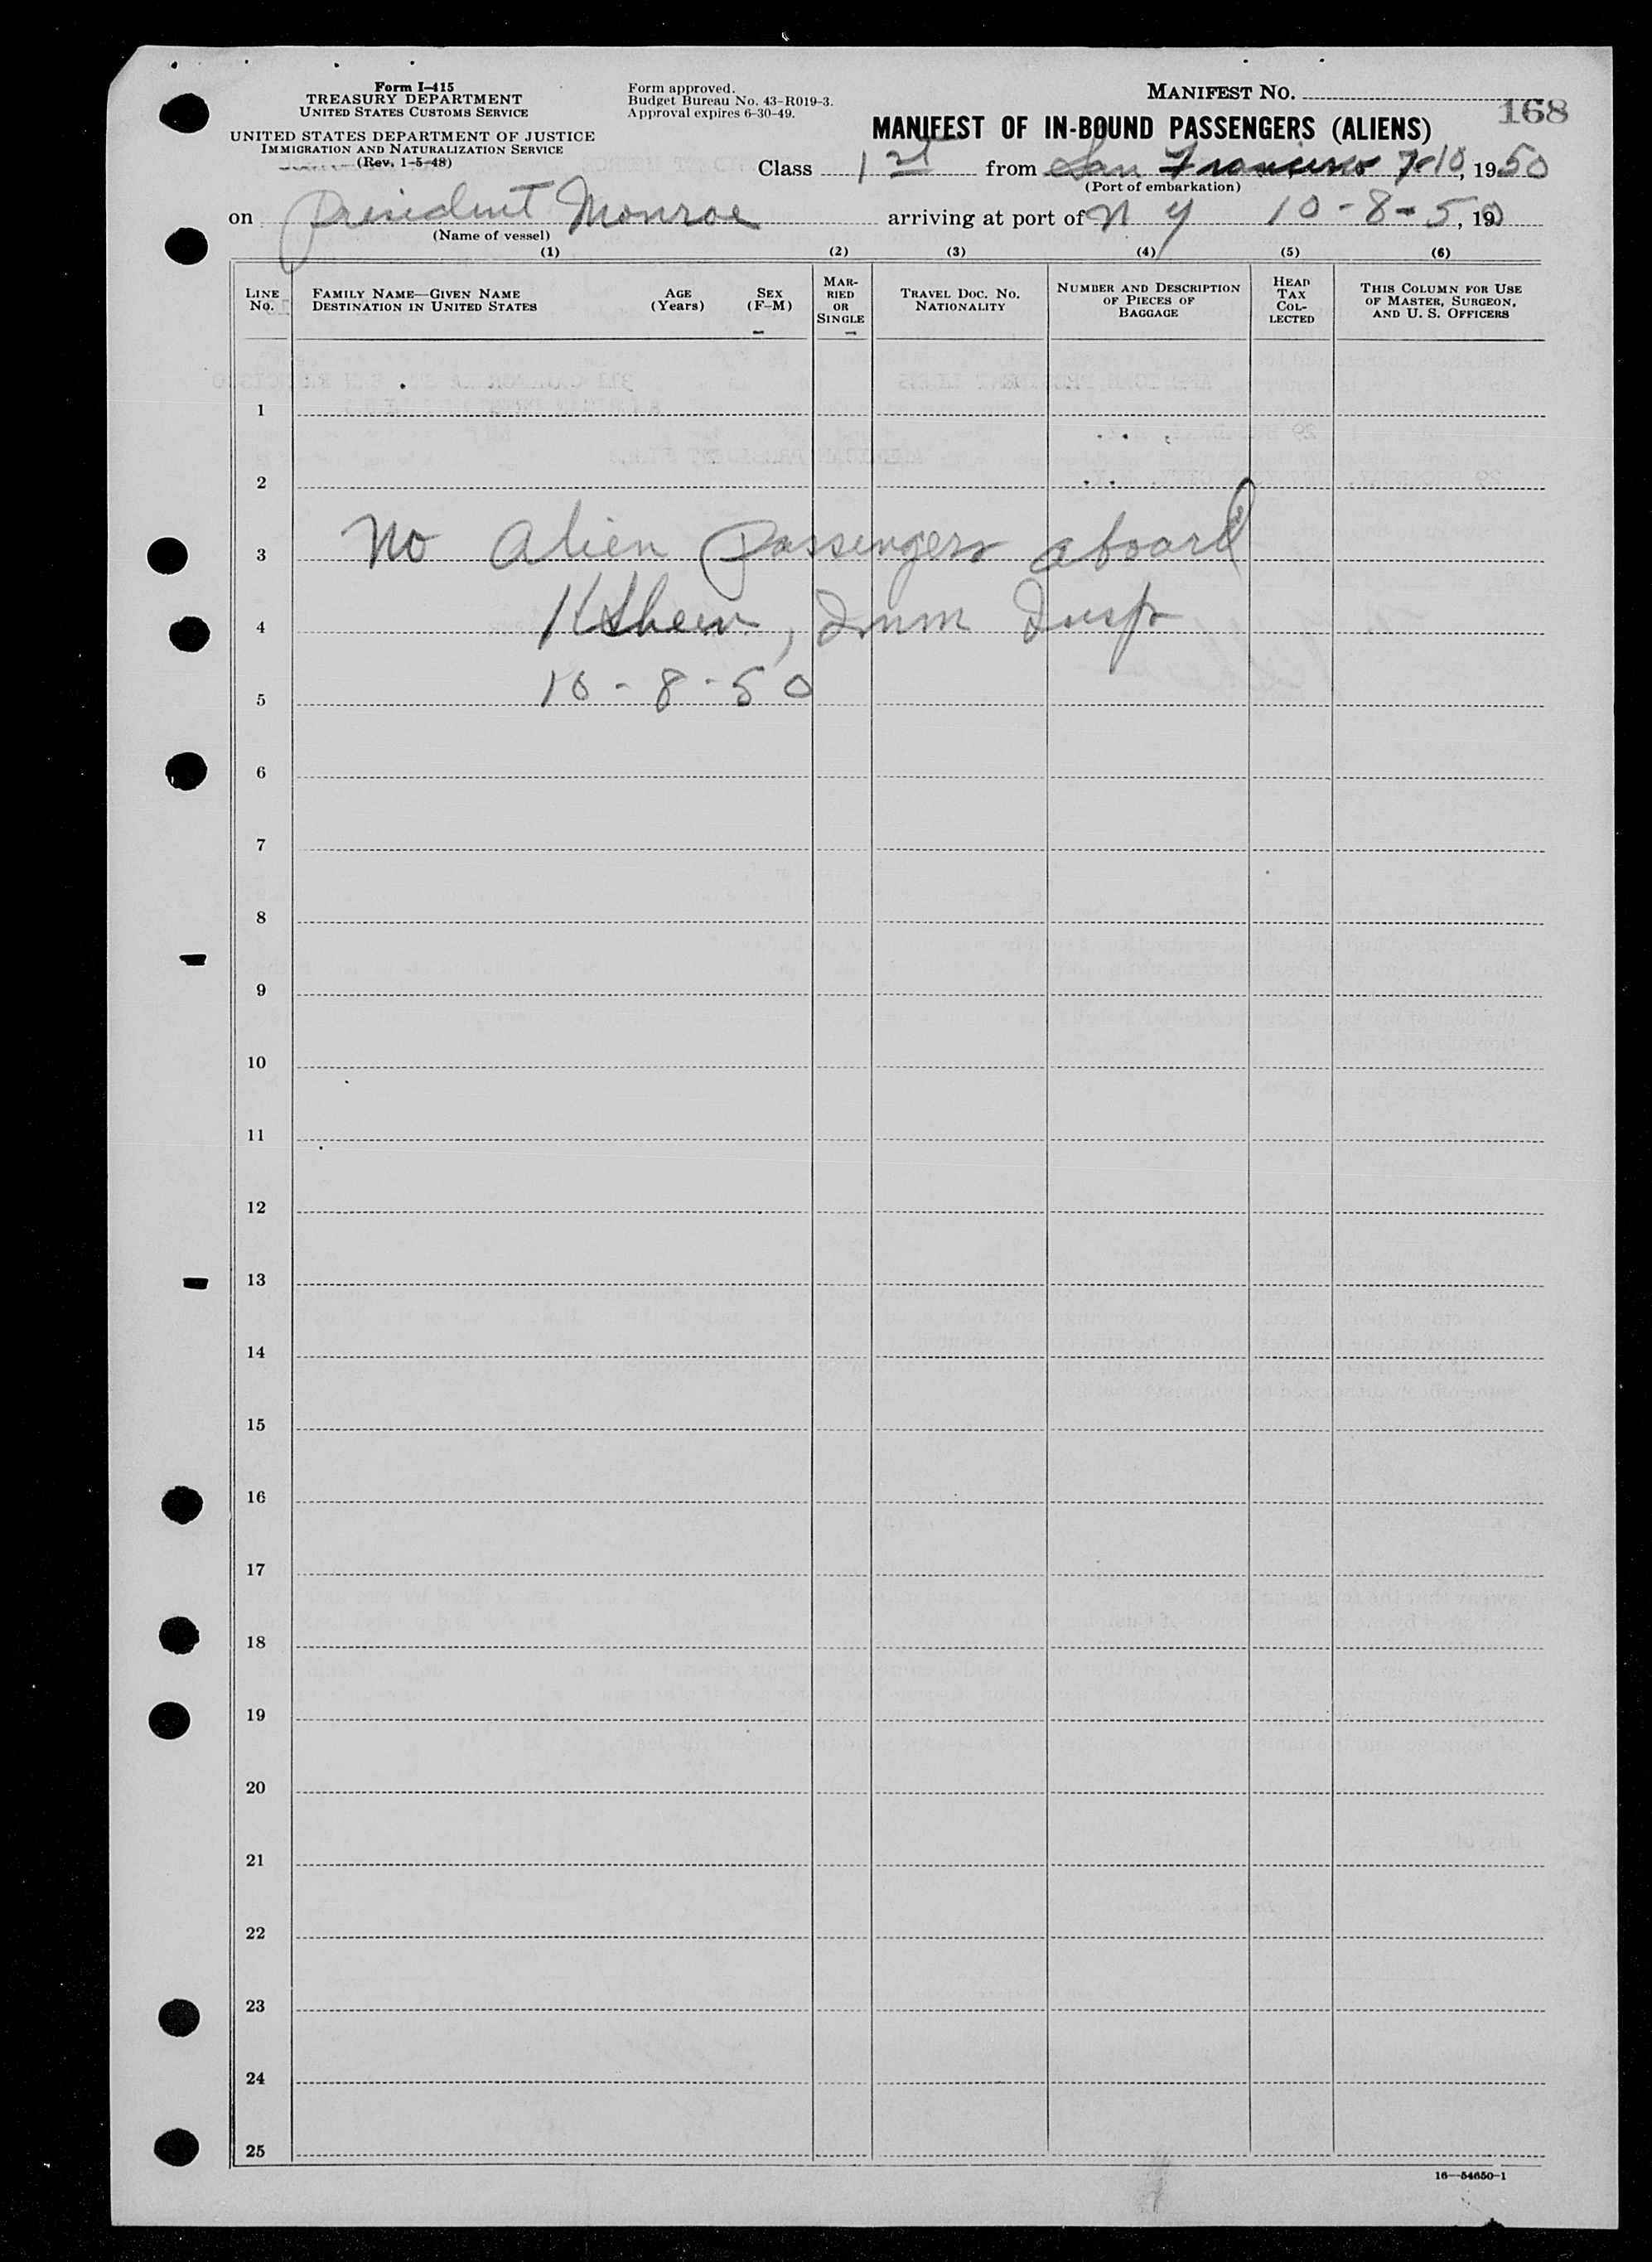 Form I-415
TREASURY DEPARTMENT
UNITED STATES CUSTOMS SERVICE
UNITED STATES DEPARTMENT OF JUSTICE
IMMIGRATION AND NATURALIZATION SERVICE
(Rev. 1-5-48)
Form approved.
Budget Bureau No. 43-R019-3.
Approval expires 6-30-49.
MANIFEST NO.
168
MANIFEST OF IN-BOUND PASSENGERS (ALIENS)
Class 1st from San Francisco 7-10, 1950
(Port of embarkation)
on President Monroe arriving at port of N Y 10-8-50, 19
(Name of vessel)
(1) (2) (3) (4) (5) (6)
LINE No. FAMILY NAME—GIVEN NAME DESTINATION IN UNITED STATES AGE (Years) SEX (F-M) MARRIED OR SINGLE TRAVEL DOC. NO. NATIONALITY NUMBER AND DESCRIPTION OF PIECES OF BAGGAGE HEAD TAX COLLECTED THIS COLUMN FOR USE OF MASTER, SURGEON, AND U. S. OFFICERS
1
2
3 No Alien Passengers aboard
4 Imm Insp
5 10-8-50
6
7
8
9
10
11
12
13
14
15
16
17
18
19
20
21
22
23
24
25
16—54650-1